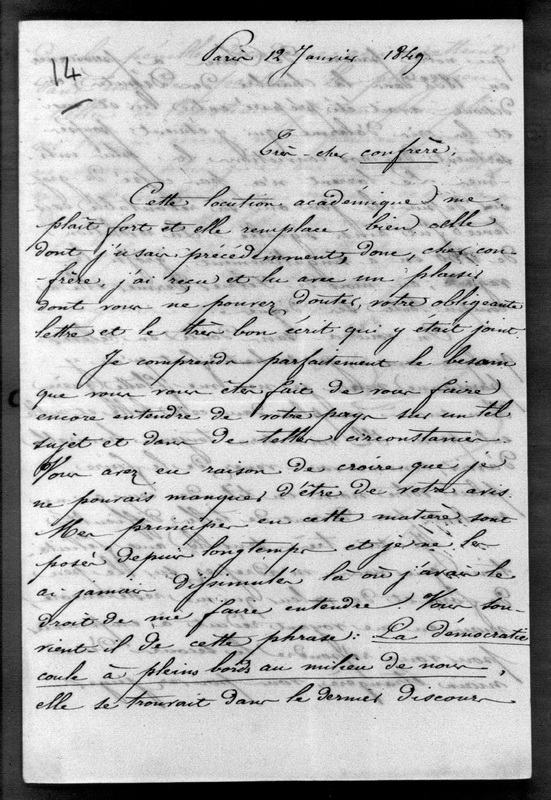 14
Paris 12 Janvier 1849
Très-cher confrère,
Cette locution académique me
plaît fort et elle remplace bien celle
dont j'usais précédemment, donc, cher con-
-frère, j'ai reçu et lu avec un plaisir
dont vous ne pouvez douter, votre obligeante
lettre et le très bon écrit qui y était joint.
Je comprends parfaitement le besoin
que vous vous êtes fait de vous faire
encore entendre de votre pays sur un tel
sujet et dans de telles circonstances.
Vous avez eu raison de croire que je
ne pouvais manquer d'être de votre avis.
Mes principes en cette matière sont
posés depuis longtemps et je ne les
ai jamais dissimulés là où j'avais le
droit de me faire entendre. Vous sou-
vient-il de cette phrase: La démocratie
coule à pleins bords au milieu de nous,
elle se trouvait dans le dernier discours